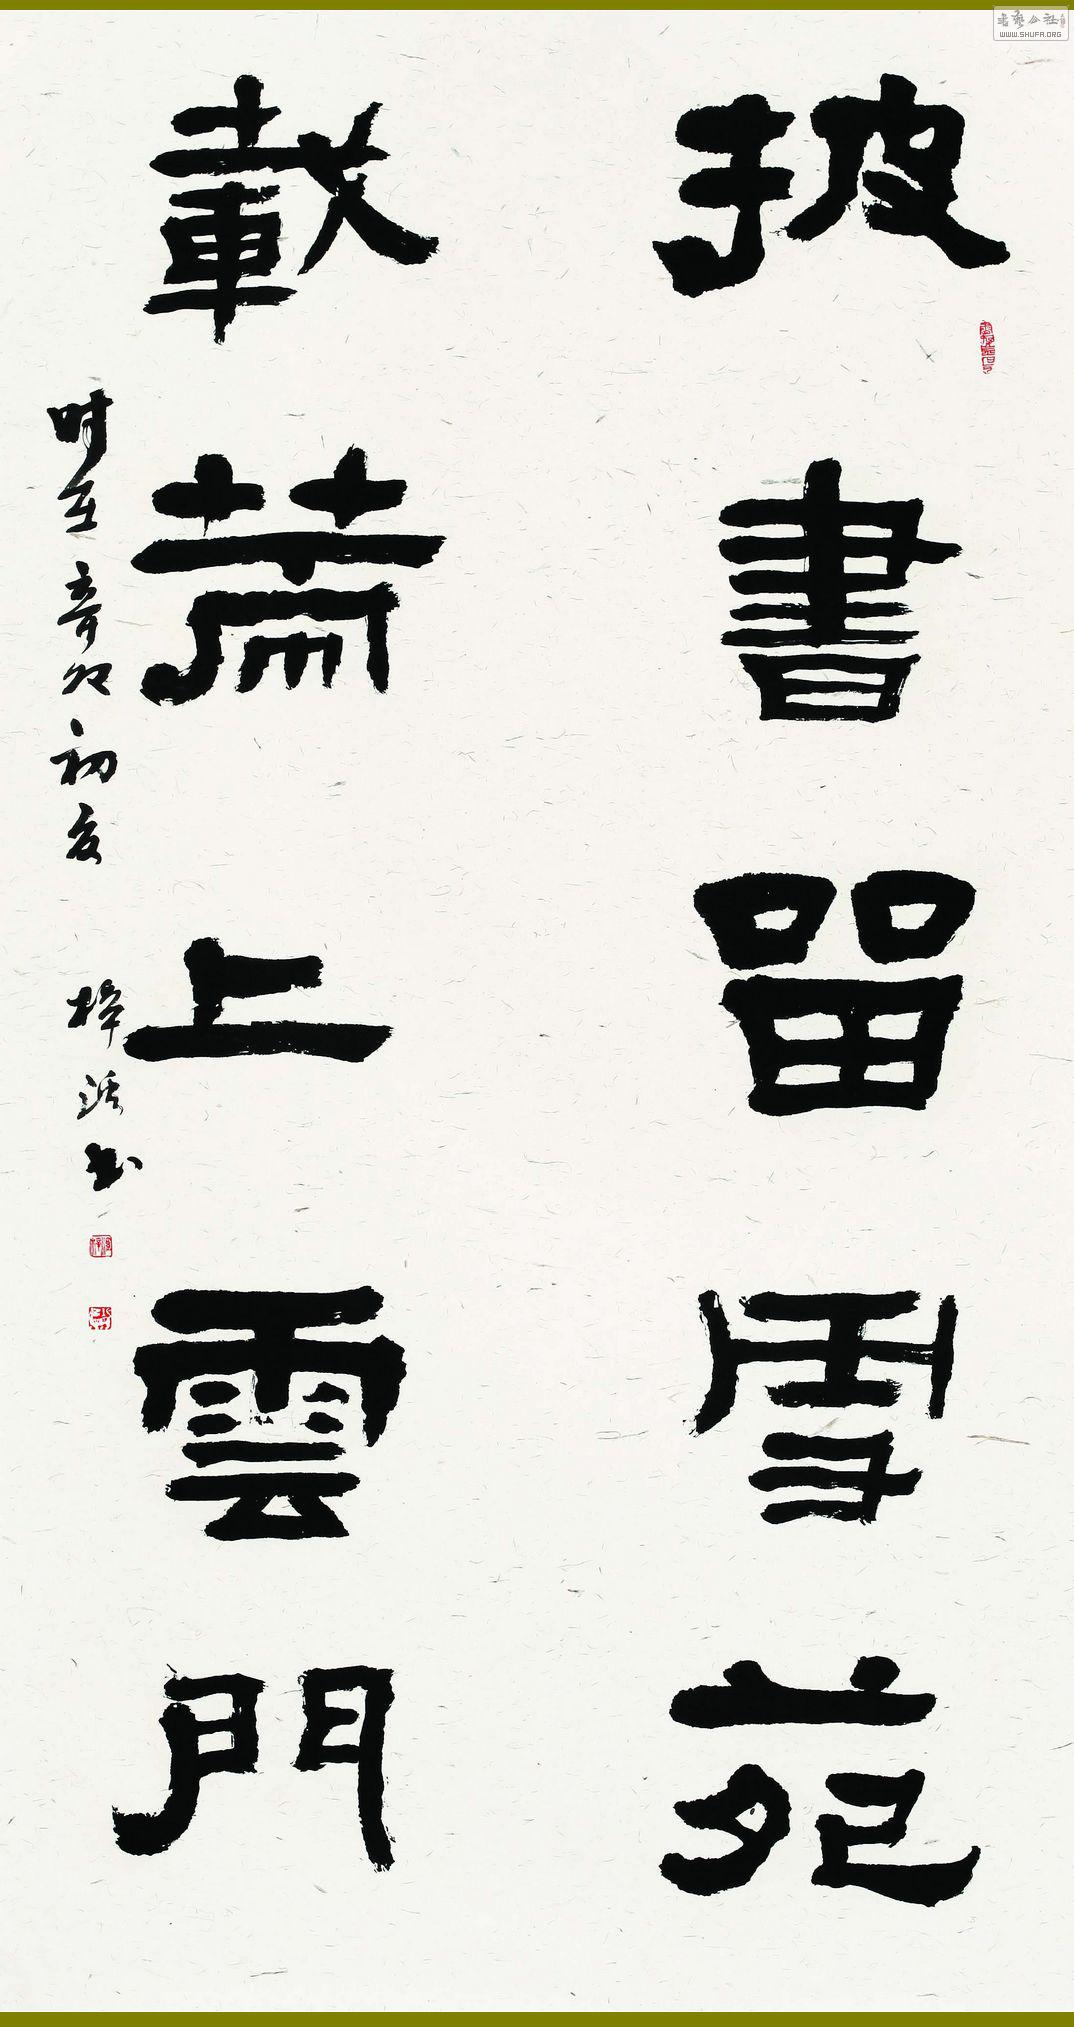 披書留雪苑
載上雲門
时在辛卯初夏 梓书
书艺公社
WWW.SHUFA.ORG